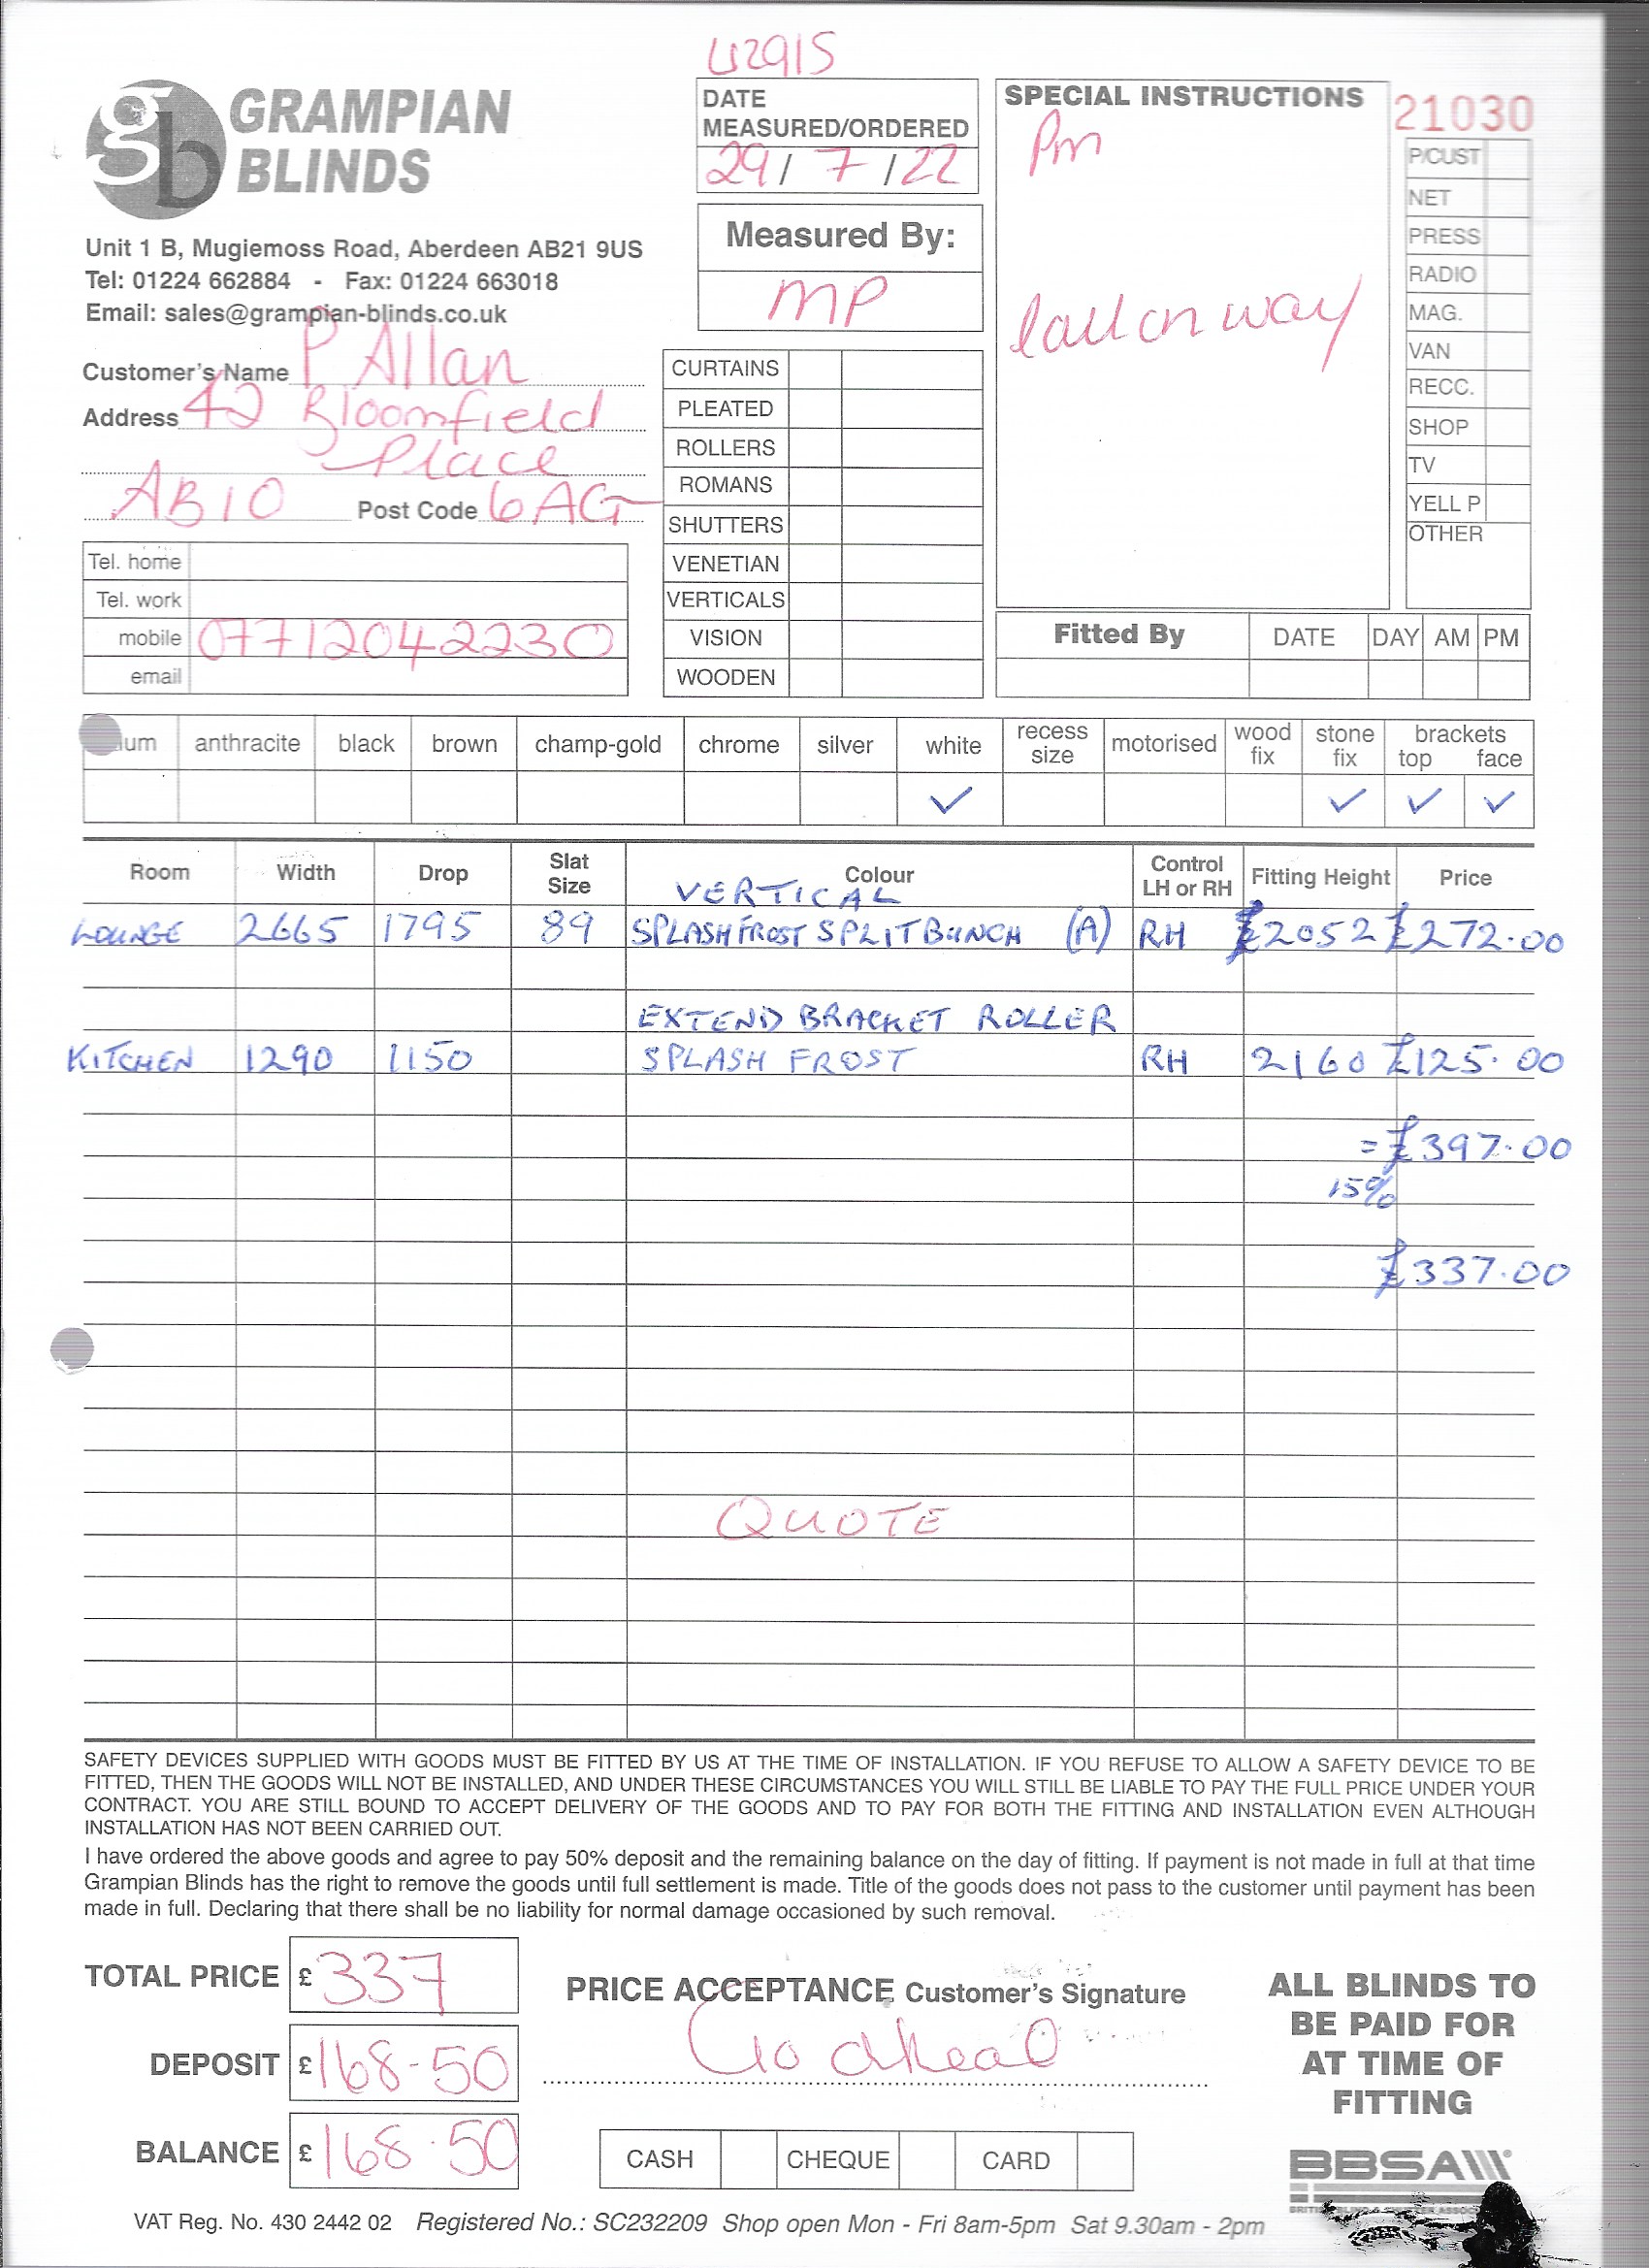 U2915
GRAMPIAN
BLINDS
Unit 1 B, Mugiemoss Road, Aberdeen AB21 9US
Tel: 01224 662884 - Fax: 01224 663018
Email: sales@grampian-blinds.co.uk
Customer's Name P Allan
Address 42 Bloomfield
Place
AB10 Post Code 6AG
Tel. home
Tel. work
mobile 07712042230
email
DATE
MEASURED/ORDERED
29/7/22
Measured By:
MP
CURTAINS
PLEATED
ROLLERS
ROMANS
SHUTTERS
VENETIAN
VERTICALS
VISION
WOODEN
SPECIAL INSTRUCTIONS
Pm
Call on way
21030
P/CUST
NET
PRESS
RADIO
MAG.
VAN
RECC.
SHOP
TV
YELL P
OTHER
Fitted By DATE DAY AM PM
ium anthracite black brown champ-gold chrome silver white recess size motorised wood fix stone fix brackets top face
✓ ✓ ✓ ✓
Room Width Drop Slat Size Colour Control LH or RH Fitting Height Price
VERTICAL
LOUNGE 2665 1795 89 SPLASH FROST SPLIT BUNCH (A) RH 2052 £272.00
EXTEND BRACKET ROLLER
KITCHEN 1290 1150 SPLASH FROST RH 2160 £125.00
=£397.00
15%
£337.00
QUOTE
SAFETY DEVICES SUPPLIED WITH GOODS MUST BE FITTED BY US AT THE TIME OF INSTALLATION. IF YOU REFUSE TO ALLOW A SAFETY DEVICE TO BE
FITTED, THEN THE GOODS WILL NOT BE INSTALLED, AND UNDER THESE CIRCUMSTANCES YOU WILL STILL BE LIABLE TO PAY THE FULL PRICE UNDER YOUR
CONTRACT. YOU ARE STILL BOUND TO ACCEPT DELIVERY OF THE GOODS AND TO PAY FOR BOTH THE FITTING AND INSTALLATION EVEN ALTHOUGH
INSTALLATION HAS NOT BEEN CARRIED OUT.
I have ordered the above goods and agree to pay 50% deposit and the remaining balance on the day of fitting. If payment is not made in full at that time
Grampian Blinds has the right to remove the goods until full settlement is made. Title of the goods does not pass to the customer until payment has been
made in full. Declaring that there shall be no liability for normal damage occasioned by such removal.
TOTAL PRICE £ 337
DEPOSIT £ 168-50
BALANCE £ 168.50
PRICE ACCEPTANCE Customer's Signature
Go ahead
CASH CHEQUE CARD
ALL BLINDS TO
BE PAID FOR
AT TIME OF
FITTING
BBSA
VAT Reg. No. 430 2442 02 Registered No.: SC232209 Shop open Mon - Fri 8am-5pm Sat 9.30am - 2pm